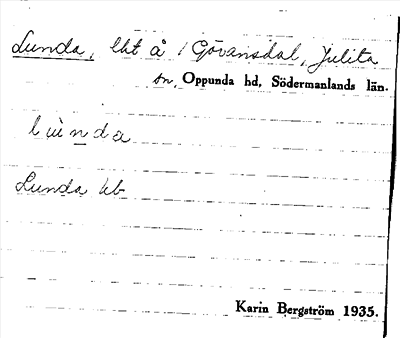 Lunda, lht å 1 Gövansdal, Julita
sn, Oppunda hd, Södermanlands län.
Lunda
Karin Bergström 1935.